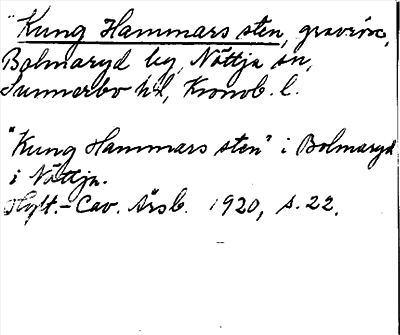 "Kung Hammars sten, gravrör,
Bolmaryd by, Nöttja sn,
Sunnerbo hd, Kronob. l.
"Kung Hammars sten" i Bolmaryd
i Nöttja.
Hylt.-Cav. Årsb. 1920, s. 22.